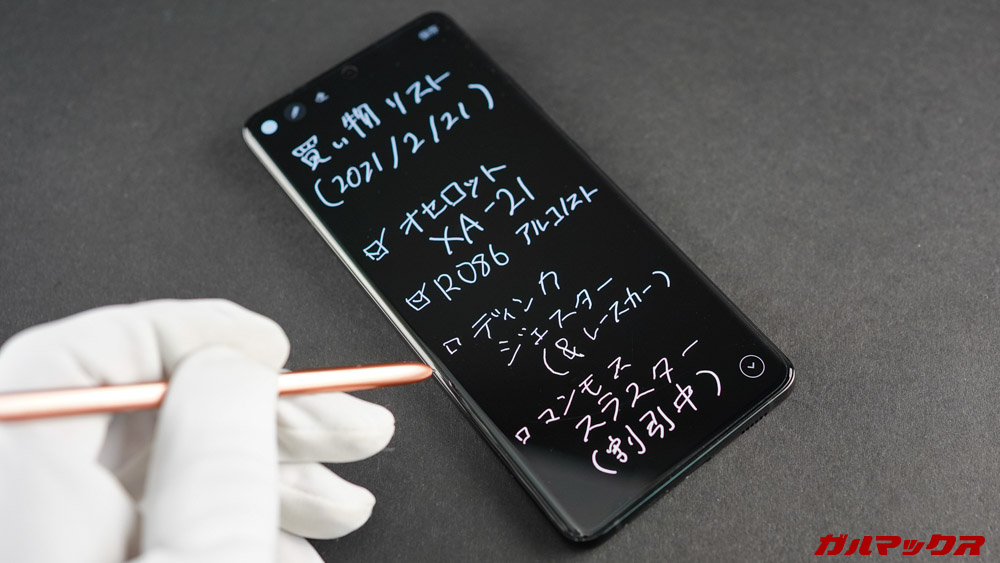 保存
買い物リスト
(2021/2/21)
☑ オセロット
XA-21
☑ R086 アルコノスト
□ ディンカ
ジェスター
(&レースカー)
□ コンモス
スラスター
(割引中)
ガルマックス